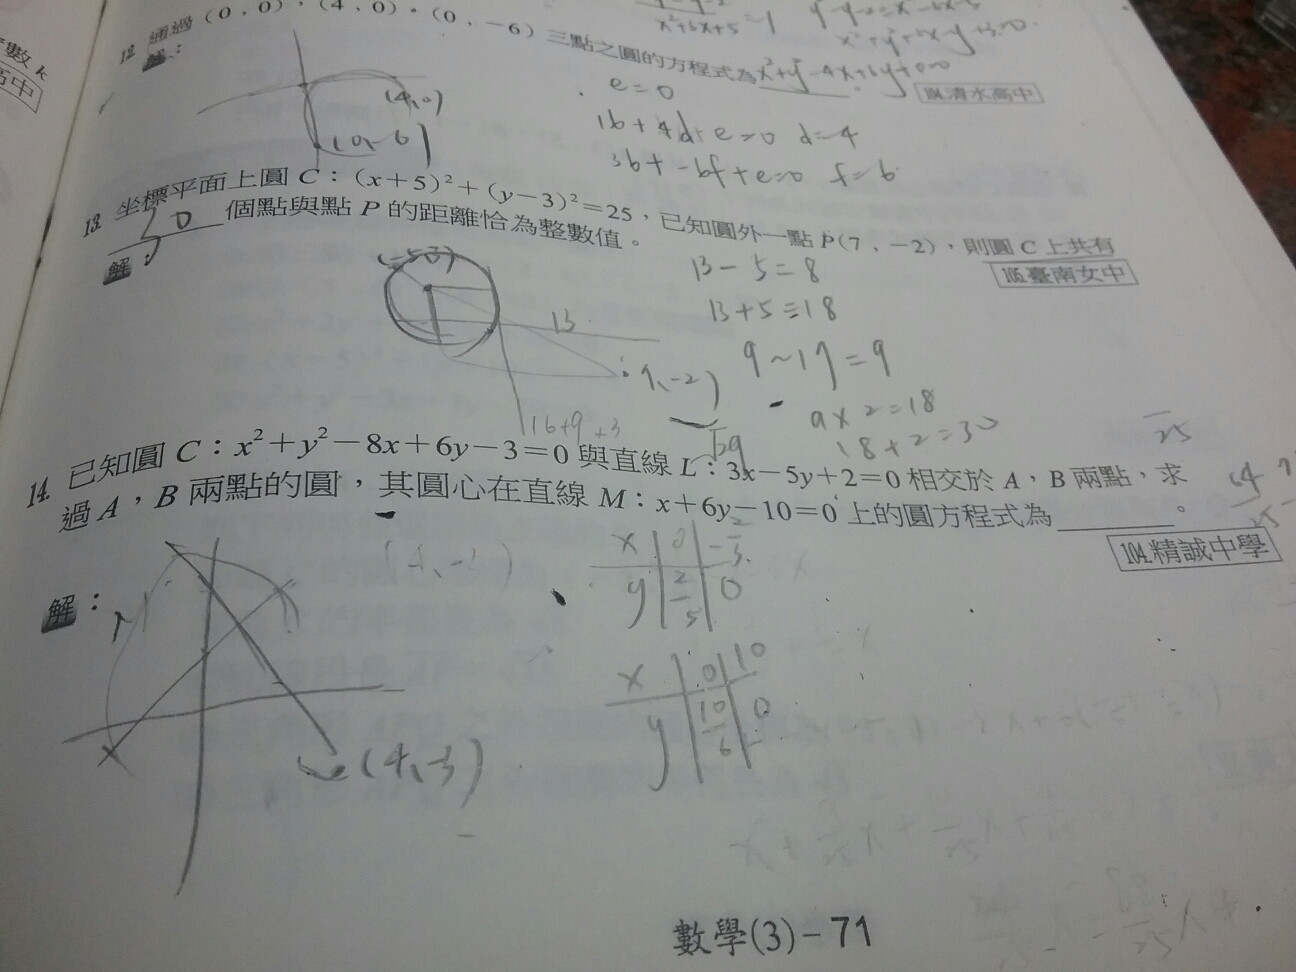 數 k
高中
12. 通過(0,0),(4,0),(0,-6)三點之圓的方程式為x²+y²-4x+6y+0=0。
104.清水高中
解:
(4,0)
(0,-6)
e=0
16+4d+e=0 d=-4
36+-6f+e=0 f=6
13. 坐標平面上圓 C:(x+5)²+(y-3)²=25,已知圓外一點 P(7,-2),則圓 C 上共有
30 個點與點 P 的距離恰為整數值。
106.臺南女中
解:
13
13-5=8
13+5=18
9~17=9
9×2=18
18+2=30
16+9+3
14. 已知圓 C:x²+y²-8x+6y-3=0 與直線 L:3x-5y+2=0 相交於 A,B 兩點,求
過 A,B 兩點的圓,其圓心在直線 M:x+6y-10=0 上的圓方程式為________。
104.精誠中學
解:
M
(4,-3)
x 0 -2/3
y 2/5 0
x 0 10
y 10/6 0
數學(3)-71